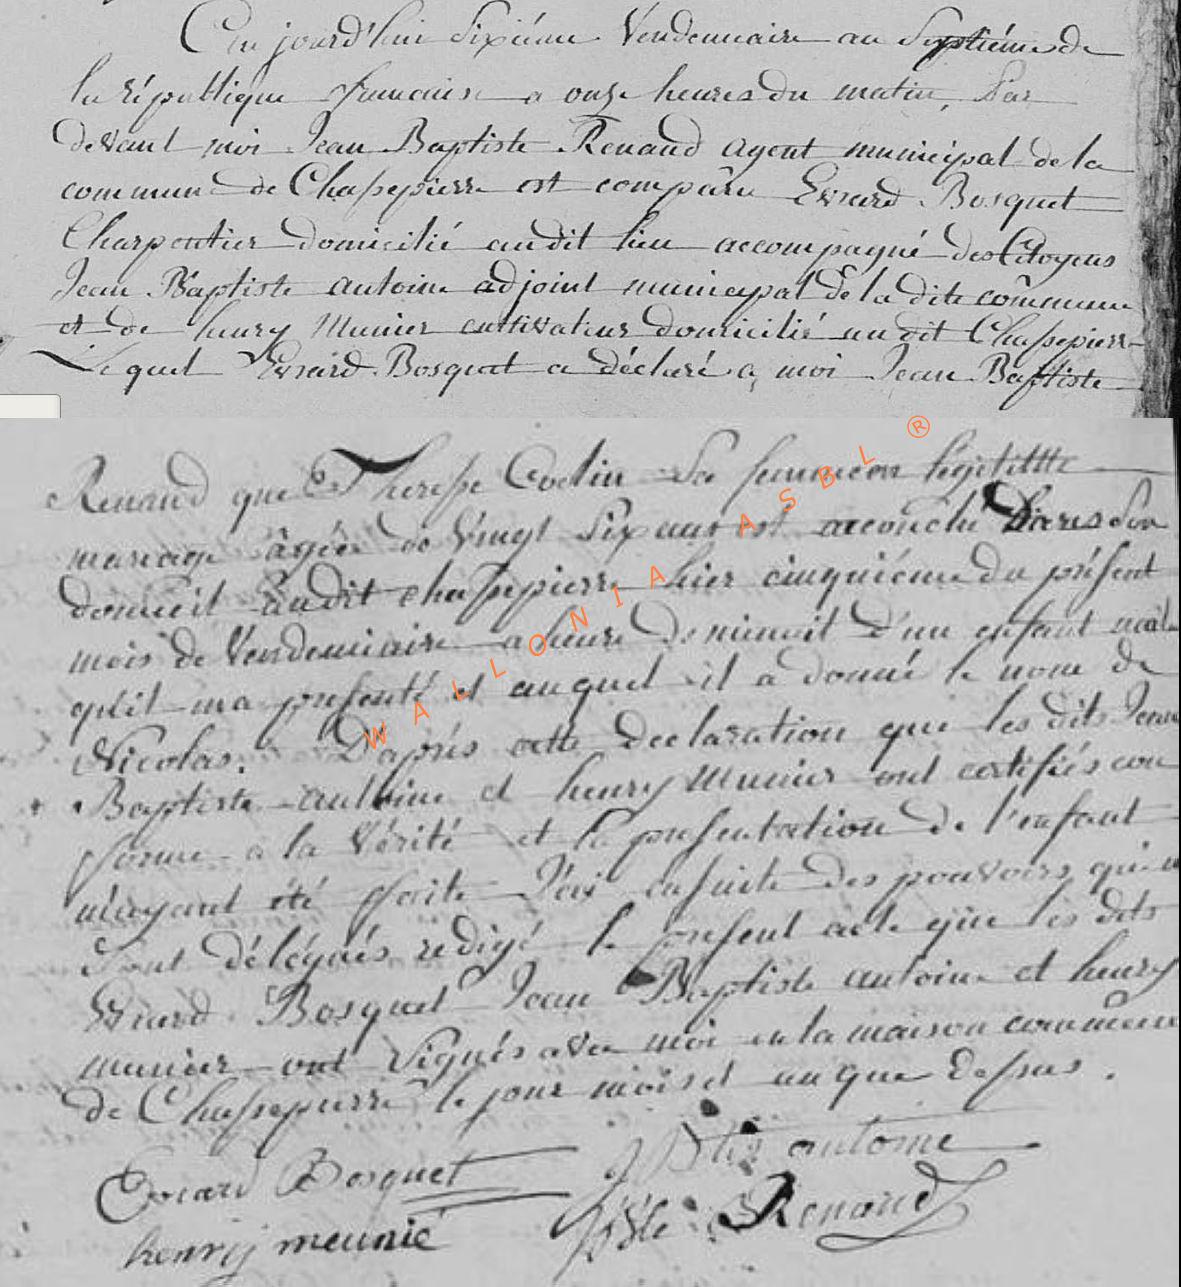 Ce jourd'hui Sixiéme Vendemiaire an Septiéme de
la république francaise a onze heures du matin, Par
devant moi Jean Baptiste Renaud agent municipal de la
commune de Chassepierre est comparu Evrard Bosquet
Charpentier domicilié audit lieu accompagné des Citoyens
Jean Baptiste antoine adjoint municipal de la dite commune
et de henry Munier cultivateur domicilié audit Chassepierre
Lequel Evrard Bosquet a déclaré a moi Jean Baptiste
Renaud que Theresse Coclin Sa femme en legitime
mariage âgée de Vingt Six ans est accouché dans Son
domicil audit chassepierre hier cinquiéme du présent
mois de Vendemiaire a heure de minuit d'un enfant mâle
qu'il ma presenté et auquel il a donné le nom de
Nicolas. D'après cette declaration que les dits Jean
Baptiste antoine et henry Munier ont certifiés con
forme a la Vérité et la presentation de l'enfant
m'ayant été faite J'ai ensuite des pouvoirs qui m
Sont délégués redigé le present acte que les dits
Evrard Bosquet Jean Baptiste antoine et henry
munier ont Signés avec moi en la maison commune
de Chassepierre le jour mois et an que dessus.
Evrard Bosquet JBtis antoine
henry meunié JBte Renaud
WALLONIA ASBL ®